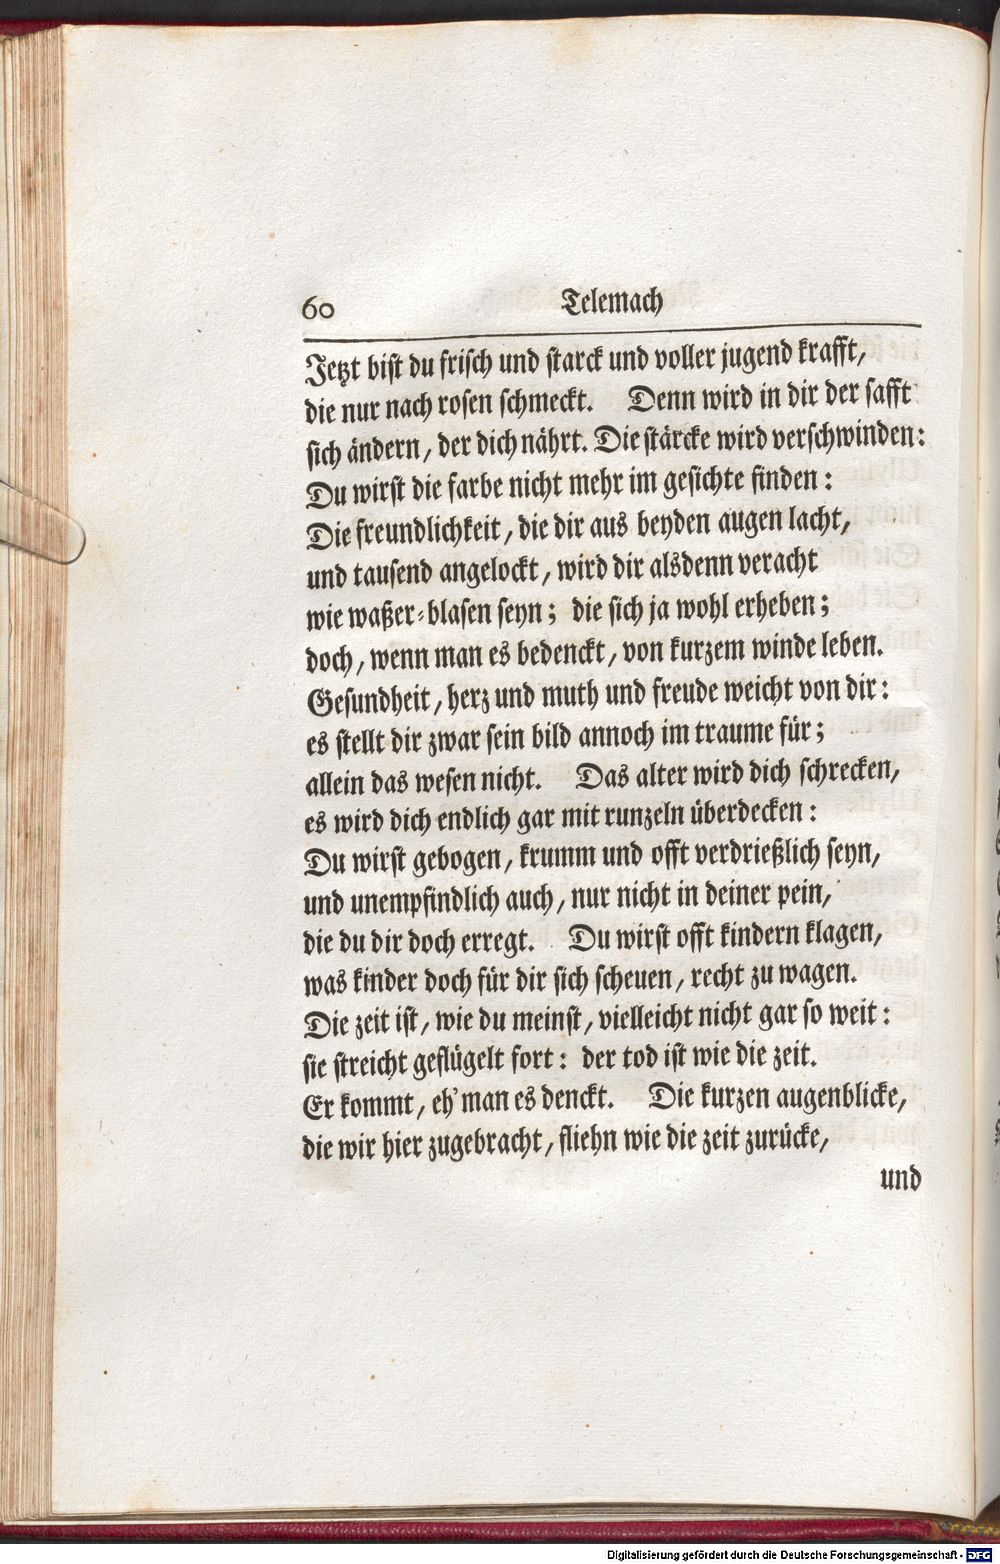 60 Telemach
Jetzt bist du frisch und starck und voller jugend krafft,
die nur nach rosen schmeckt. Denn wird in dir der safft
sich ändern, der dich nährt. Die stärcke wird verschwinden:
Du wirst die farbe nicht mehr im gesichte finden:
Die freundlichkeit, die dir aus beyden augen lacht,
und tausend angelockt, wird dir alsdenn veracht
wie waßer-blasen seyn; die sich ja wohl erheben;
doch, wenn man es bedenckt, von kurzem winde leben.
Gesundheit, herz und muth und freude weicht von dir:
es stellt dir zwar sein bild annoch im traume für;
allein das wesen nicht. Das alter wird dich schrecken,
es wird dich endlich gar mit runzeln überdecken:
Du wirst gebogen, krumm und offt verdrießlich seyn,
und unempfindlich auch, nur nicht in deiner pein,
die du dir doch erregt. Du wirst offt kindern klagen,
was kinder doch für dir sich scheuen, recht zu wagen.
Die zeit ist, wie du meinst, vielleicht nicht gar so weit:
sie streicht geflügelt fort: der tod ist wie die zeit.
Er kommt, eh' man es denckt. Die kurzen augenblicke,
die wir hier zugebracht, fliehn wie die zeit zurücke,
und
Digitalisierung gefördert durch die Deutsche Forschungsgemeinschaft - DFG